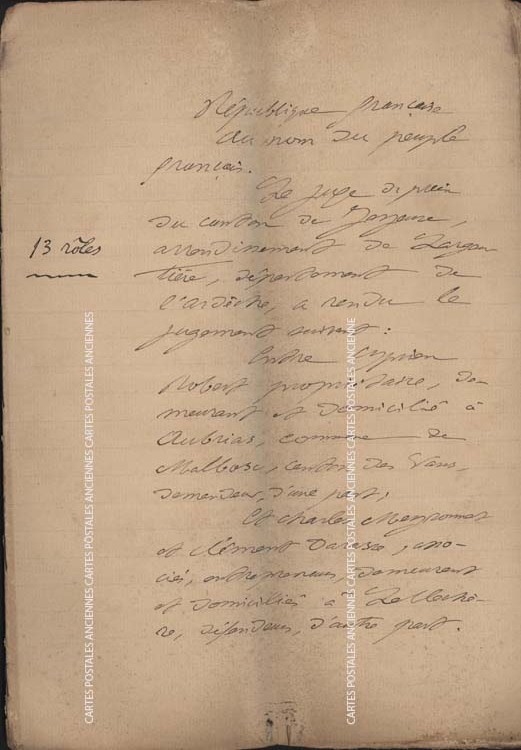 République française
Au nom du peuple
français.
Le juge de paix
du canton de Joyeuse,
13 rôles
arrondissement de Largen
tière, département de
l'ardèche, a rendu le
jugement suivant :
Entre Cyprien
Robert propriétaire, de-
meurant et domicilié à
Aubrias, commune de
Malbosc, canton des Vans,
demandeur, d'une part,
Et Charles Meyronnet
et Clément, asso-
ciés, entrepreneurs, demeurant
et domiciliés à
défendeurs, d'autre part.
CARTES POSTALES ANCIENNES CARTES POSTALES ANCIENNES CARTES POSTALES ANCIENNES
CARTES POSTALES ANCIENNES CARTES POSTALES ANCIENNES CARTES POSTALES ANCIENNES